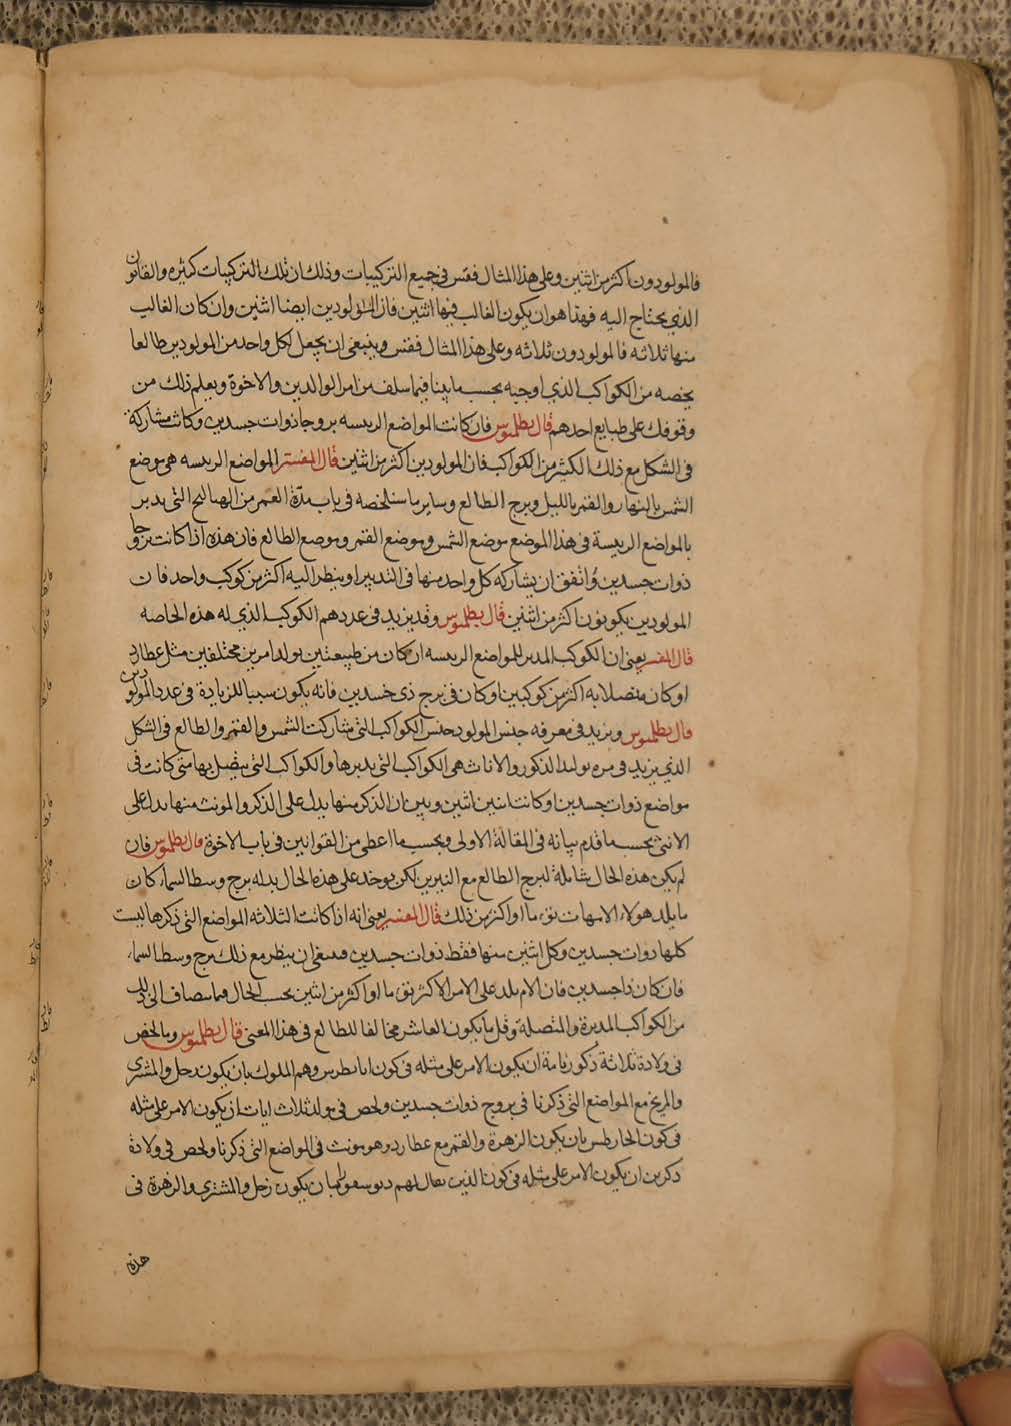 فالمولودون اكثر من اثنين وعلى هذا المثال فقس في جميع التركيبات وذلك ان تلك التركيبات كثيره والقانون
الذي يحتاج اليه فهذا هو ان يكون الغالب فيها اثنين فان المولودين ايضا اثنين وان كان الغالب
منها ثلاثه فالمولودون ثلاثه وعلى هذا المثال فقس وينبغي ان يجعل لكل واحد من المولودين طالعا
يخصه من الكواكب الذي اوجبه بحسب ما بينا فيما سلف من امر الوالدين والاخوة ويعلم ذلك من
وقوفك على طبايع احدهم قال بطلميوس فان كانت المواضع الريسه بروجا ذوات جسدين وكانت مشاركة
في الشكل مع ذلك الكثير من الكواكب فان المولودين اكثر من اثنين قال المفسر المواضع الريسه هي موضع
الشمس بالنهار والقمر بالليل وبرج الطالع وساير ما سنلخصه في باب مدة العمر من الهياليج التي يدبر
بالمواضع الريسة في هذا الموضع موضع الشمس وموضع القمر وموضع الطالع فان هذه اذا كانت بروجا
ذوات جسدين واتفق ان يشاركه كل واحد منها في التدبير او ينظر اليه اكثر من كوكب واحد فان
المولودين يكونون اكثر من اثنين قال بطلميوس وقد يزيد في عددهم الكوكب الذي له هذه الخاصه
قال المفسر يعني ان الكوكب المدبر للمواضع الريسه ان كان من طبيعتين يولد امرين مختلفين مثل عطارد
او كان متصلا به اكثر من كوكبين او كان في برج ذي جسدين فانه يكون سببا للزيادة في عدد المولودين
قال بطلميوس ويزيد في معرفه جنس المولود جنس الكواكب التي شاركت الشمس والقمر والطالع في الشكل
الذي يزيد في مره توليد الذكور والاناث هي الكواكب التي يدبرها والكواكب التي يتصل بها متى كانت في
مواضع ذوات جسدين او كانت اثنين اثنين وبين ان الذكر منها يدل على الذكر والمونث منها يدل على
الانثى بحسب ما قدم بيانه في المقالة الاولى وبحسب ما اعطى من القوانين في باب الاخوة قال بطلميوس فان
لم يكن هذه الحال شاملة لبرج الطالع مع النيرين لكن يوخد على هذه الحال بدله برج وسط السماء كان
ما يلد هولاء الامهات توءما او اكثر من ذلك قال المفسر يعني انه اذا كانت الثلاثه المواضع التي ذكرها ليست
كلها ذوات جسدين وكل اثنين منها فقط ذوات جسدين فينبغي ان ينظر مع ذلك برج وسط السماء
فان كان ذا جسدين فان الام يلد على الامر الاكثر توءما او اكثر من اثنين بحسب الحال فيما ينضاف الى ذلك
من الكواكب المدبرة والمتصلة وقل ما يكون العاشر مخالفا للطالع في هذا المعنى قال بطلميوس وبالخص
في ولادة ثلاثة ذكورنامة ان يكون الامر على مثله في كون وهم الملوك بان يكون زحل والمشترى
والمريخ مع المواضع التي ذكرنا في بروج ذوات جسدين ولخص في مولد ثلاث اناث ان يكون الامر على مثله
في كون بان يكون الزهرة والقمر مع عطارد وهو مونث في المواضع التي ذكرنا ولخص في ولادة
ذكرين ان يكون الامر على مثله في كون الذين يقال لهم بان يكون زحل والمشترى والزهرة في
هذه